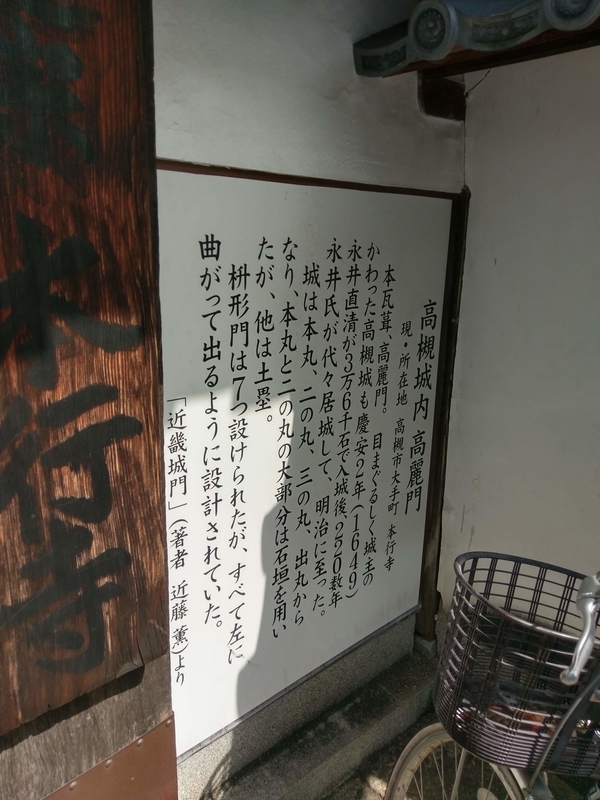 高槻城内 高麗門
現・所在地 高槻市大手町 本行寺
本瓦葺、高麗門。 目まぐるしく城主の
かわった高槻城も慶安2年(1649)
永井直清が3万6千石で入城後、250数年
永井氏が代々居城して、明治に至った。
城は本丸、二の丸、三の丸、出丸から
なり、本丸と二の丸の大部分は石垣を用い
たが、他は土塁。
枡形門は7つ設けられたが、すべて左に
曲がって出るように設計されていた。
「近畿城門」(著者 近藤 薫)より
本行寺